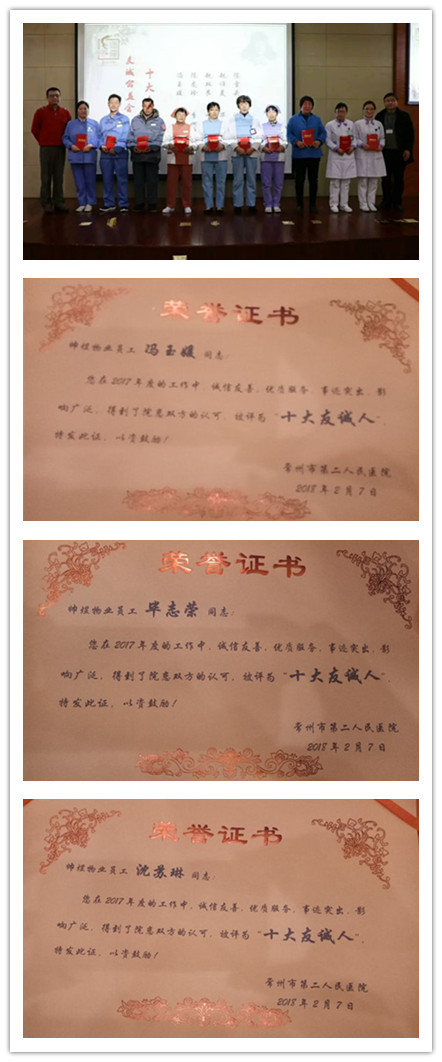 友诚公益会
十大
荣誉证书
帅煜物业员工 冯玉媛 同志:
您在2017年度的工作中,诚信友善、优质服务、事迹突出、影
响广泛,得到了院患双方的认可,被评为“十大友诚人”,
特发此证,以资鼓励!
常州市第二人民医院
2018年2月7日
荣誉证书
帅煜物业员工 毕志荣 同志:
您在2017年度的工作中,诚信友善、优质服务、事迹突出、影
响广泛,得到了院患双方的认可,被评为“十大友诚人”,
特发此证,以资鼓励!
常州市第二人民医院
2018年2月7日
荣誉证书
帅煜物业员工 沈苏琳 同志:
您在2017年度的工作中,诚信友善、优质服务、事迹突出、影
响广泛,得到了院患双方的认可,被评为“十大友诚人”,
特发此证,以资鼓励!
常州市第二人民医院
2018年2月7日